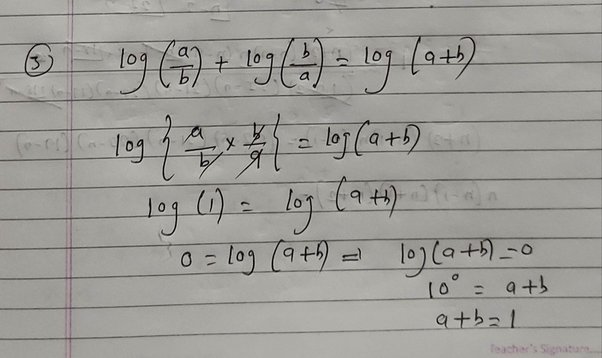 ③ log(a/b) + log(b/a) = log (a+b)
log { a/b × b/a } = log(a+b)
log (1) = log (a+b)
0 = log (a+b) ⇒ log(a+b)=0
10⁰ = a+b
a+b=1
Teacher's Signature